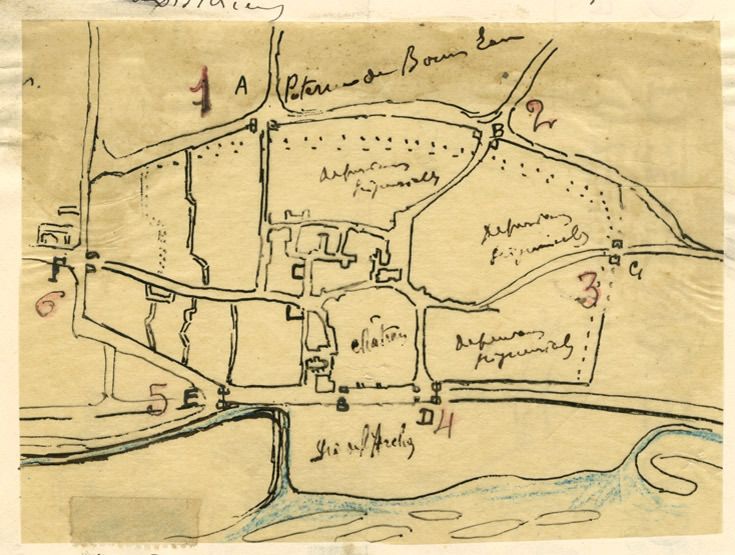 1
A
Poterne de Bonne Eau
2
B
dépendances
seigneuriales
dépendances
seigneuriales
C
3
6
château
dépendances
seigneuriales
5
E
D
4